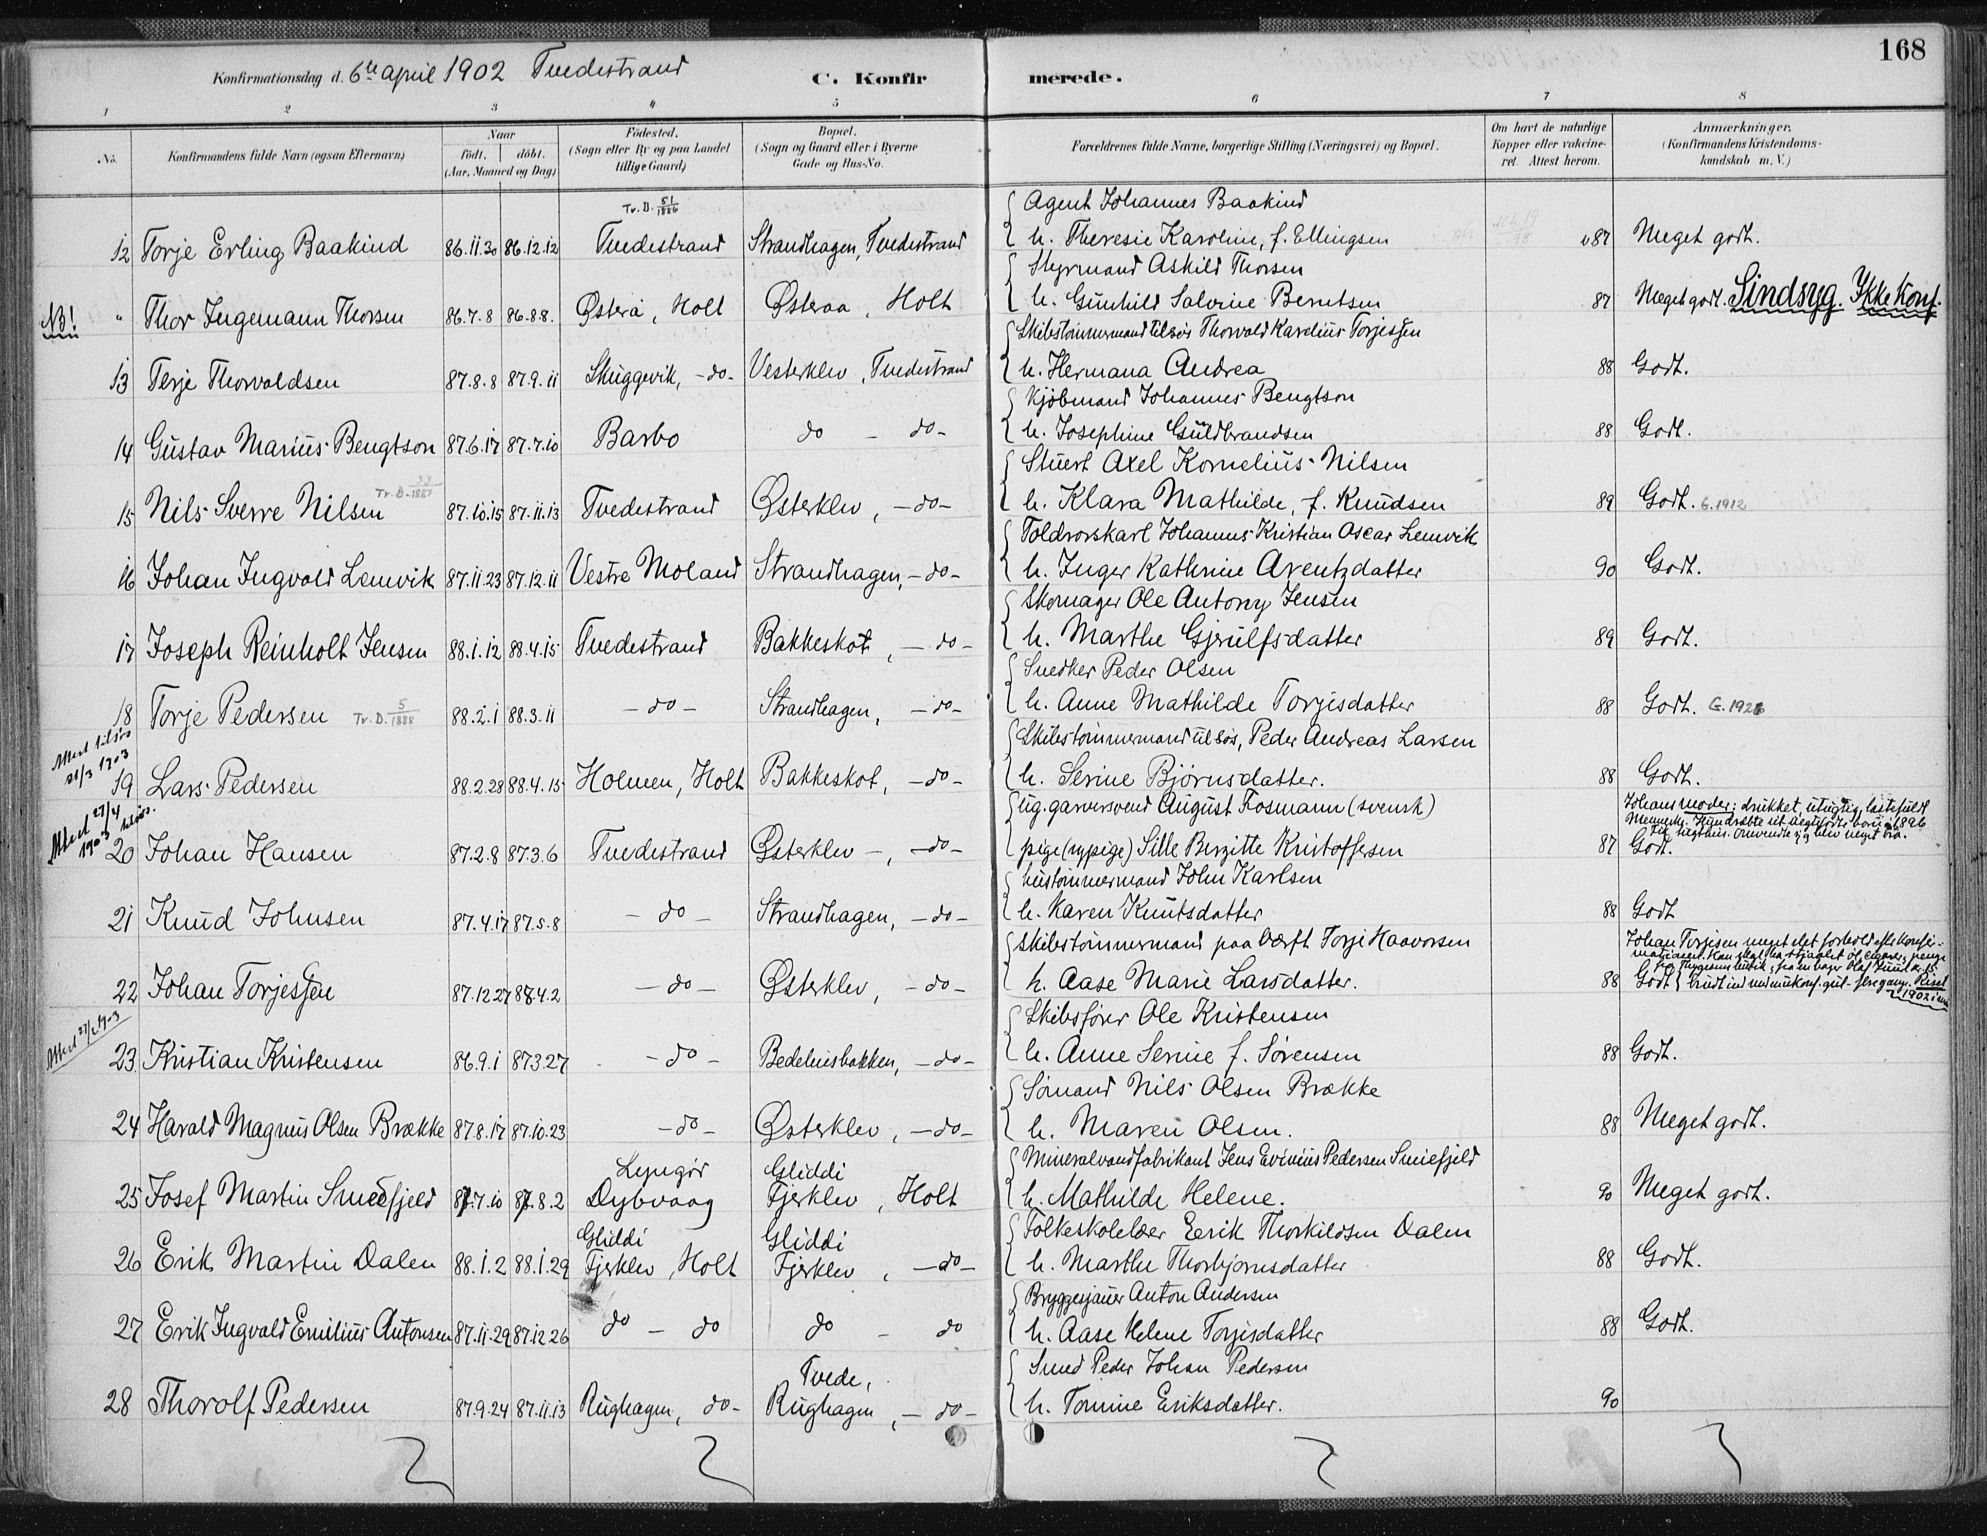 168
Konfirmationsdag d. 6te april 1902 Tvedestrand C. Konfirmerede.
1 2 3 4 5 6 7 8
No. Konfirmandens fulde Navn (ogsaa Efternavn) Naar födt. döbt. (Aar, Maaned og Dag) Födested. (Sogn eller By og paa Landet tillige Gaard) Bopæl. (Sogn og Gaard eller i Byerne Gade og Hus-No. Forældrenes fulde Navne, borgerlige Stilling (Næringsvei) og Bopæl. Om havt de naturlige Kopper eller vaccineret. Attest herom. Anmærkninger. (Konfirmandens Kristendomskundskab m. V.)
Tv. D. 51/1886 Agent Johannes Baakind
12 Torje Erling Baakind 86.11.30 86.12.12 Tvedestrand Strandhagen, Tvedestrand h. Theresie Karoline, f. Ellingsen 87 Meget godt.
Styrmand Askild Thorsen
NB! " Thor Ingemann Thorsen 86.7.8 86.8.8. Østerå, Holt Østeraa, Holt h. Gunhild Salvine Berntsen 87 Meget godt. Sindsyg. Ikke konf.
Skibstømmermand tilsøs Thorvald Kardius Torjesen
13 Terje Thorvaldsen 87.8.8 87.9.11 Skuggevik, -do- Vesterklev, Tvedestrand h. Hermana Andrea 88 Godt.
Kjøbmand Johannes Bengtson
14 Gustav Marius Bengtson 87.6.17 87.7.10 Barbo do - do- h. Josephine Guldbrandsen 88 Godt.
Stuert Axel Kornelius Nilsen
15 Nils Sverre Nilsen Tv. D. 33/1887 87.10.15 87.11.13 Tvedestrand Østerklev, -do- h. Klara Mathilde, f. Knudsen 89 Godt. G. 1912
Toldrorskarl Johannes Kristian Oscar Lemvik
16 Johan Ingvald Lemvik 87.11.23 87.12.11 Vestre Moland Strandhagen, -do- h. Inger Kathrine Arentzdatter 90 Godt.
Skomager Ole Antony Jensen
17 Joseph Reinholt Jensen 88.1.12 88.4.15 Tvedestrand Bakkeskot, -do- h. Marthe Gjerulfsdatter 89 Godt.
Snedker Peder Olsen
18 Torje Pedersen Tv. D. 5/1888 88.2.1 88.3.11 -do- Strandhagen, -do- h. Anne Mathilde Torjisdatter 88 Godt. G. 1926
Attest tilsøs 21/3 1903 Skibstømmermand tilsøs, Peder Andreas Larsen
19 Lars Pedersen 88.2.28 88.4.15 Holmen, Holt Bakkeskot, -do- h. Serine Bjørnsdatter. 88 Godt.
Attest 27/4 1903 tilsøs. ug. garversvend August Fosmann (svensk) Johans moder: drukket, utugtig, lastefuldt
20 Johan Hansen 87.2.8 87.3.6 Tvedestrand Østerklev -, -do- pige (sypige) Sille Birgitte Kristoffersen 87 Godt.
hustømmermand John Karlsen
21 Knud Johnsen 87.4.17 87.5.8 -do- Strandhagen, -do- h. Karen Knutsdatter 88 Godt
Skibstømmermand paa Værft Torje Haavorsen Johan Torjesen meget slet forhold efter konfirmationen.
22 Johan Torjessen 87.12.27 88.4.2 -do- Østerklev, -do- h. Aase Marie Larsdatter. 88 Godt
Attest 1903 Skibsfører Ole Kristensen
23 Kristian Kristensen 86.9.1 87.3.27 -do- Bedehusbakken, -do- h. Anne Serine f. Sørensen 88 Godt.
Sømand Nils Olsen Brække
24 Harald Magnus Olsen Brække 87.8.17 87.10.23 -do- Østerklev, -do- h. Maren Olsen. 88 Meget godt.
Lyngør Gliddi Mineralvandfabrikant Jens Evinius Pedersen Smiefjeld
25 Josef Martin Smiefjeld 87.7.10 87.8.2 Dybvaag Fjerklev, Holt h. Mathilde Helene. 90 Meget godt.
Gliddi Gliddi Folkeskolelærer Eerik Thorkildsen Dalen
26 Erik Martin Dalen 88.1.2 88.1.29 Fjerklev, Holt Fjerklev, -do- h. Marthe Thorbjørnsdatter 88 Godt.
Bryggesjauer Anton Andersen
27 Erik Ingvald Emilius Antonsen 87.11.29 87.12.26 do - do do - do h. Aase Helene Torjisdatter 88 Godt.
Tvede, Smed Peder Johan Pedersen
28 Thorolf Pedersen 87.9.24 87.11.13 Rughagen, do- Rughagen, -do- h. Tomine Eriksdatter. 90